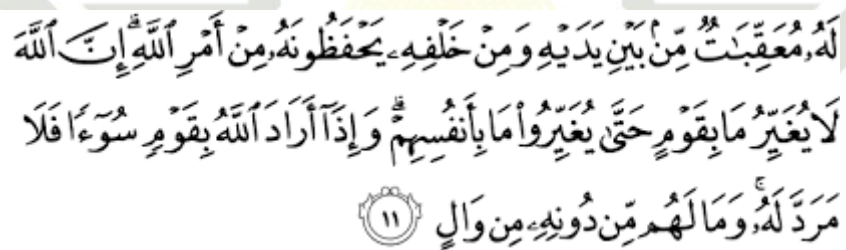 لَهُۥ مُعَقِّبَٰتٌ مِّنۢ بَيْنِ يَدَيْهِ وَمِنْ خَلْفِهِۦ يَحْفَظُونَهُۥ مِنْ أَمْرِ ٱللَّهِ ۗ إِنَّ ٱللَّهَ
لَا يُغَيِّرُ مَا بِقَوْمٍ حَتَّىٰ يُغَيِّرُوا۟ مَا بِأَنفُسِهِمْ ۗ وَإِذَآ أَرَادَ ٱللَّهُ بِقَوْمٍ سُوٓءًا فَلَا
مَرَدَّ لَهُۥ ۚ وَمَا لَهُم مِّن دُونِهِۦ مِن وَالٍ ١١